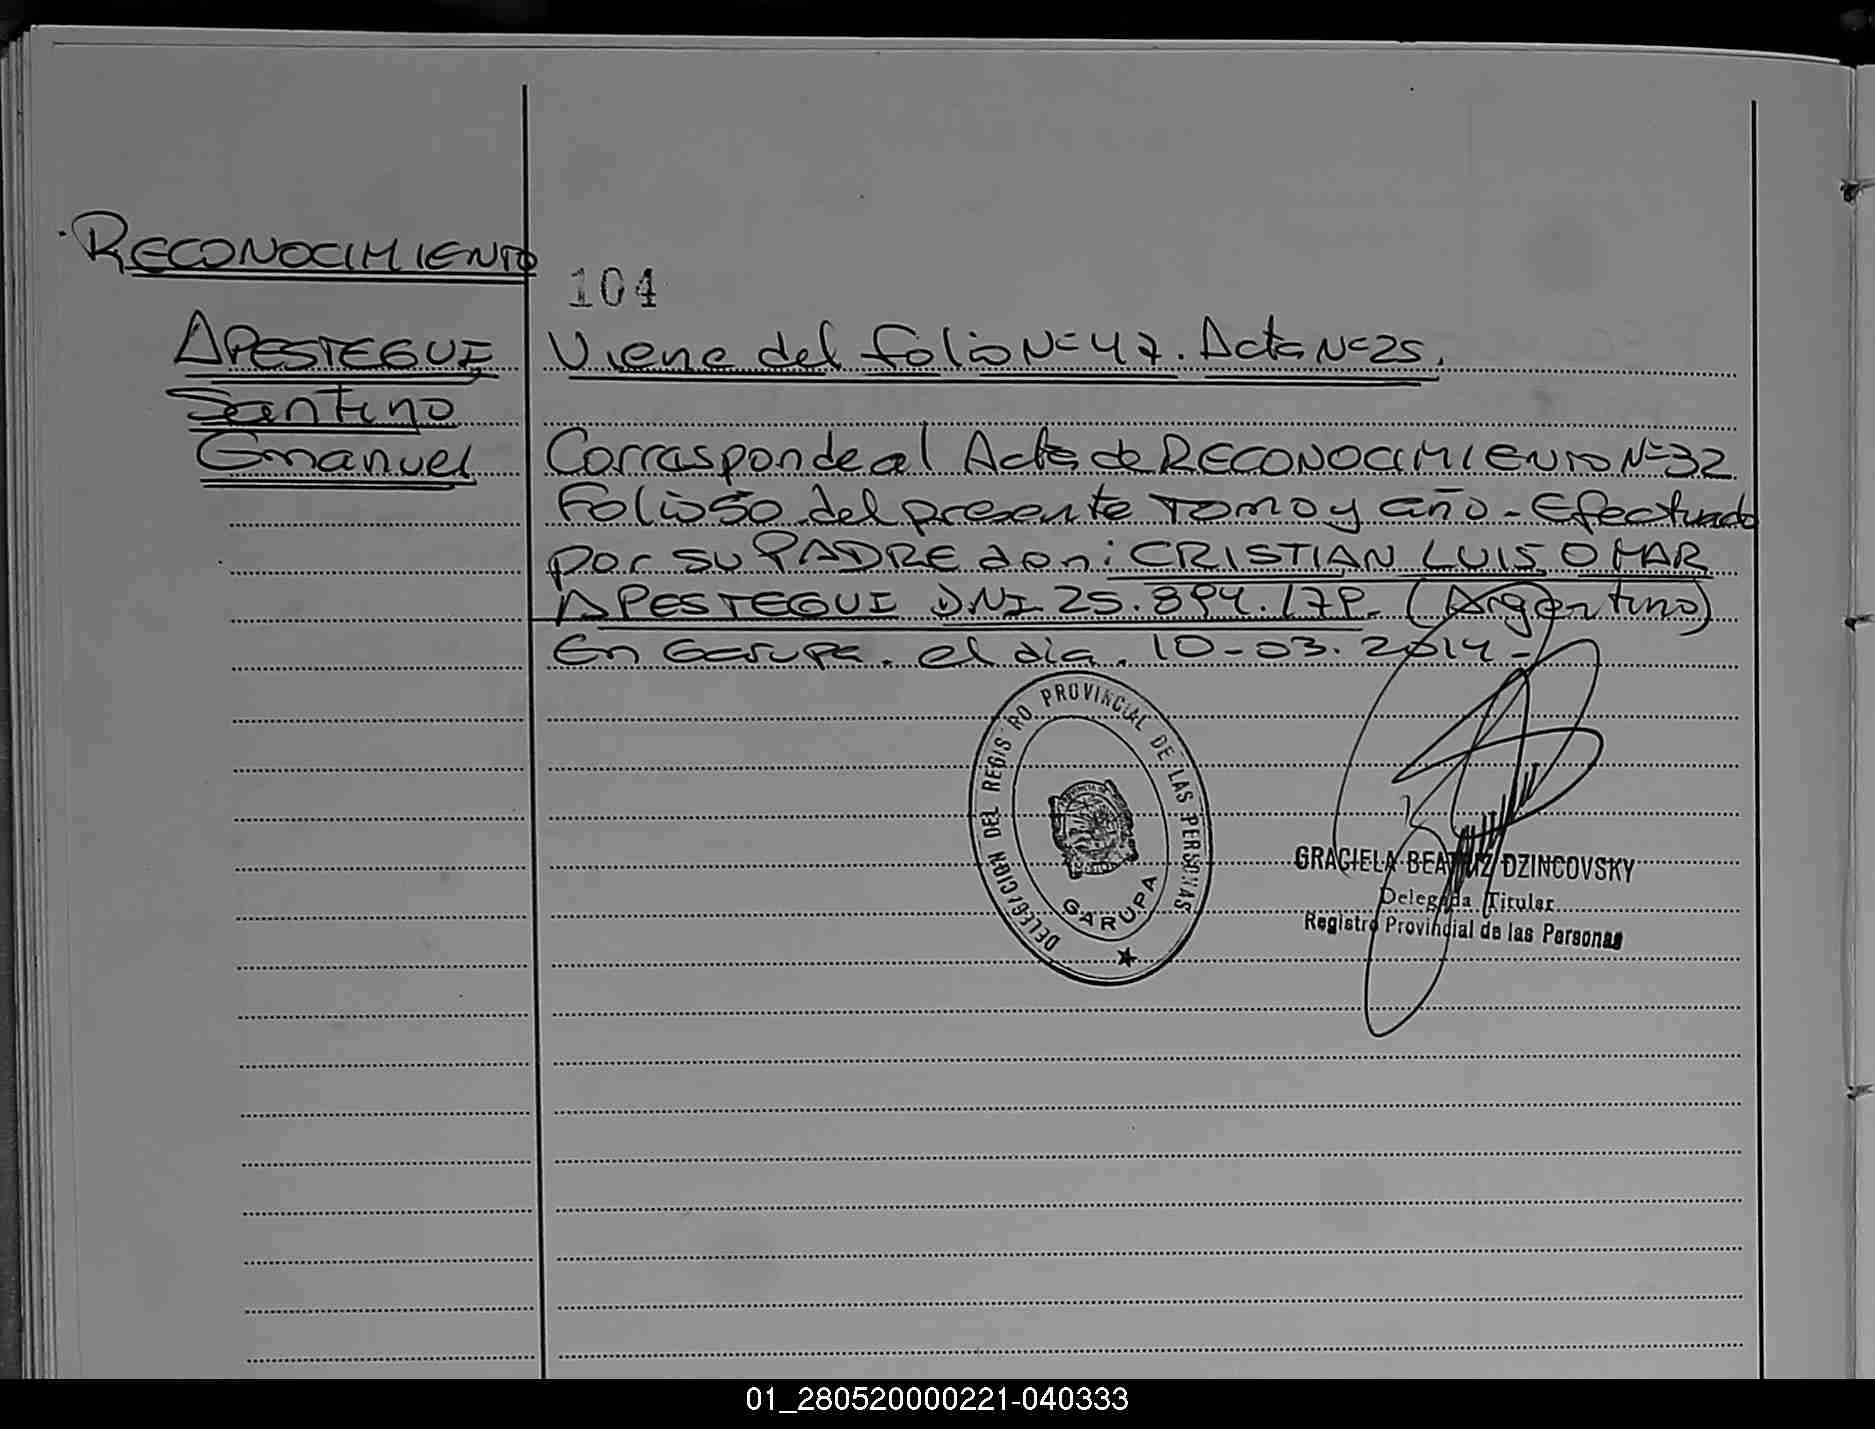 RECONOCIMIENTO
104
APESTEGUI,
Santino
Emanuel
Viene del folio Nº 47. Acta Nº 25.
Corresponde al Acta de RECONOCIMIENTO Nº 32
Folio 50 del presente Tomo y año - Efectuado
por su PADRE don: CRISTIAN LUIS OMAR
APESTEGUI DNI 25.894.179. (Argentino)
En Garupa. el dia. 10-03.2014-
DELEGACION DEL REGISTRO PROVINCIAL DE LAS PERSONAS
GARUPA
GRACIELA BEATRIZ DZINCOVSKY
Delegada Titular
Registro Provincial de las Personas
01_280520000221-040333